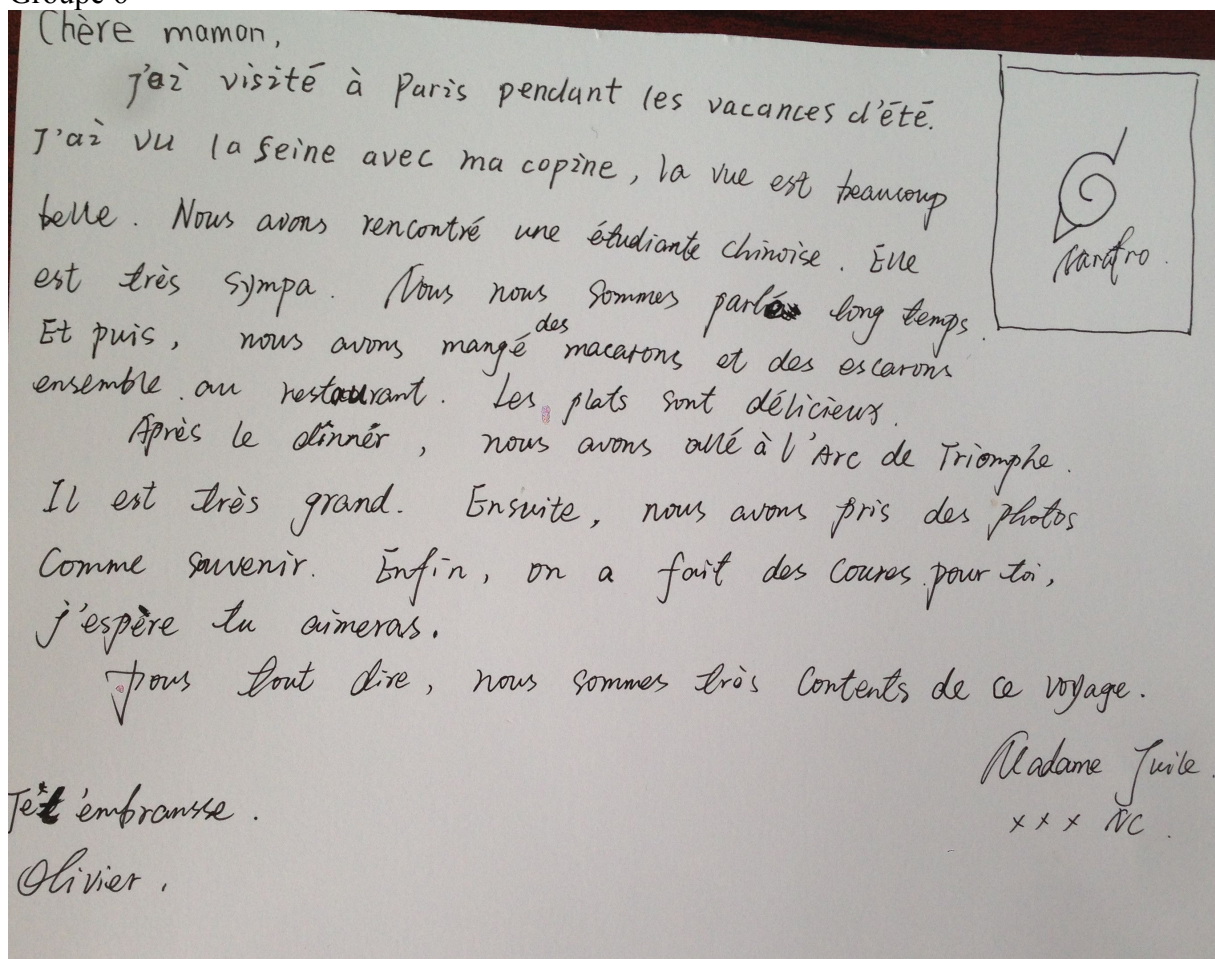 Groupe 6
Chère maman,
j'ai visité à Paris pendant les vacances d'été.
J'ai vu la Seine avec ma copine, la vue est beaucoup
belle. Nous avons rencontré une étudiante chinoise. Elle
est très sympa. Nous nous sommes parlé long temps.
Et puis, nous avons mangé des macarons et des escarons
ensemble au restaurant. Les plats sont délicieux.
Après le dînnér, nous avons allé à l'Arc de Triomphe.
Il est très grand. Ensuite, nous avons pris des photos
Comme souvenir. Enfin, on a fait des coures pour toi,
j'espère tu aimeras.
Pous tout dire, nous sommes très Contents de ce voyage.
Madame
Je t'embransse.
x x x NC.
Olivier.